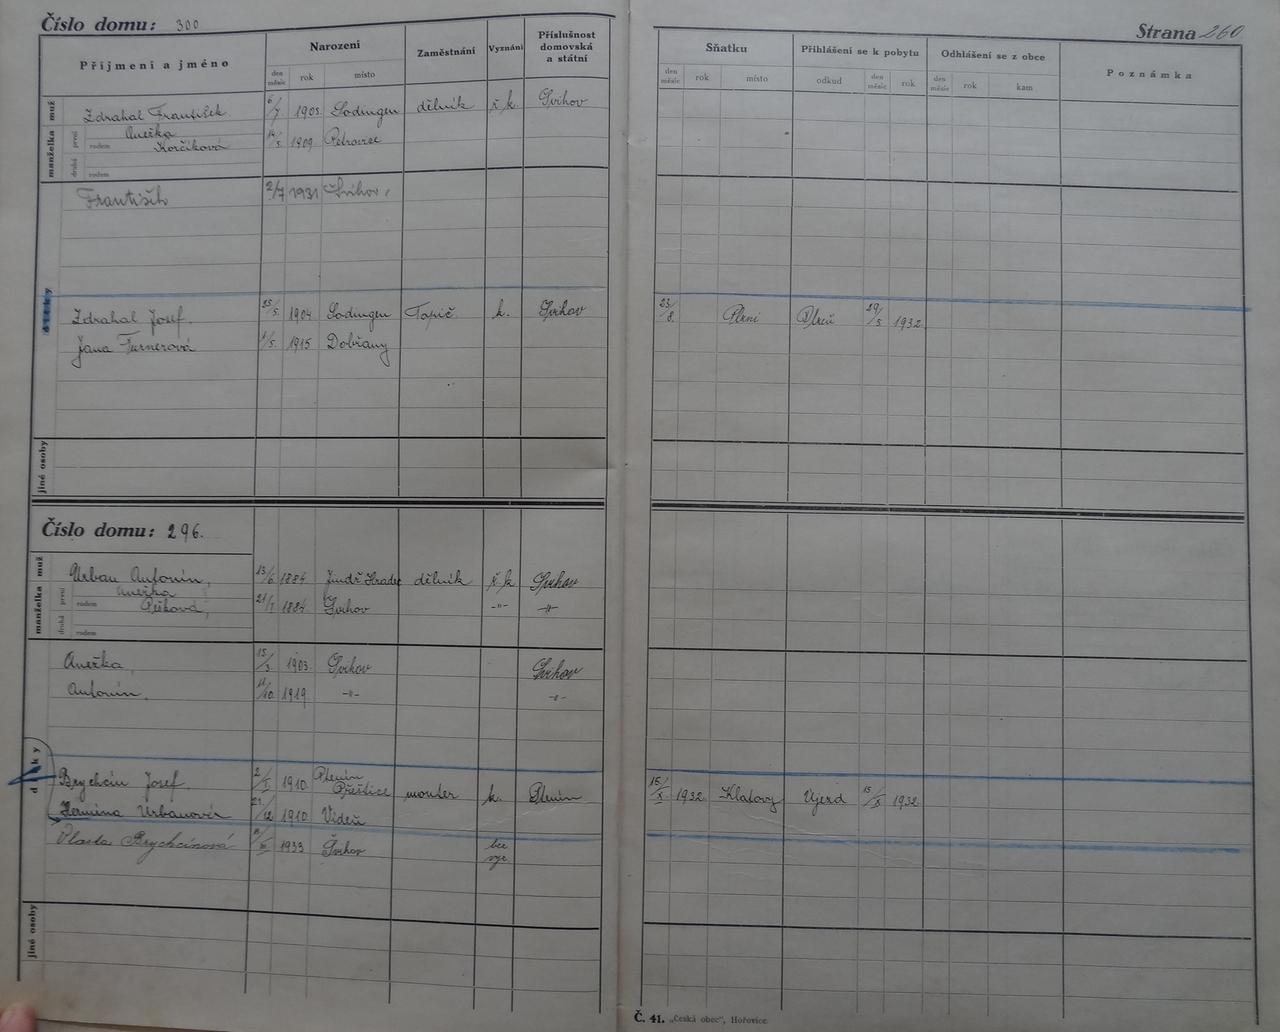 Číslo domu: 300
Strana 260
Příjmení a jméno
Narození
Zaměstnání
Vyznání
Příslušnost domovská a státní
Sňatku
Přihlášení se k pobytu
Odhlášení se z obce
Poznámka
den měsíc rok místo
den měsíc rok místo odkud den měsíc rok den měsíc rok kam
muž Zdrahal František 6/7. 1905. Sodingen dělník ř. k. Švihov
manželka první rodem Anežka Korčíková 14/5. 1909. Petrovice
druhá rodem
František 2/7 1931 Švihov.
dítky
Zdrahal Josef. 25/5. 1904 Sodingen Topič k. Švihov 23/8. Plzni 29/5 1932
Jana Turnerová 1/5. 1915 Dobřany
jiné osoby
Číslo domu: 296.
muž Urban Antonín, 13/6. 1884 Jindř. Hradec dělník ř. k. Švihov
manželka první rodem Anežka 21/1. 1884. Švihov -"- -"-
druhá rodem
Anežka, 15/3. 1903. Švihov Švihov
Antonín, 11/10. 1919. -"- -"-
dítky
Brychcín Josef. 2/1. 1910. Přeštice k. 15/X 1932 Klatovy Újezd 15/X 1932
Hermina Urbanová 21/12 1910. Vídeň
Vlasta Brychcínová 1933 Švihov bez vyz
jiné osoby
Č. 41. „Česká obec", Hořovice